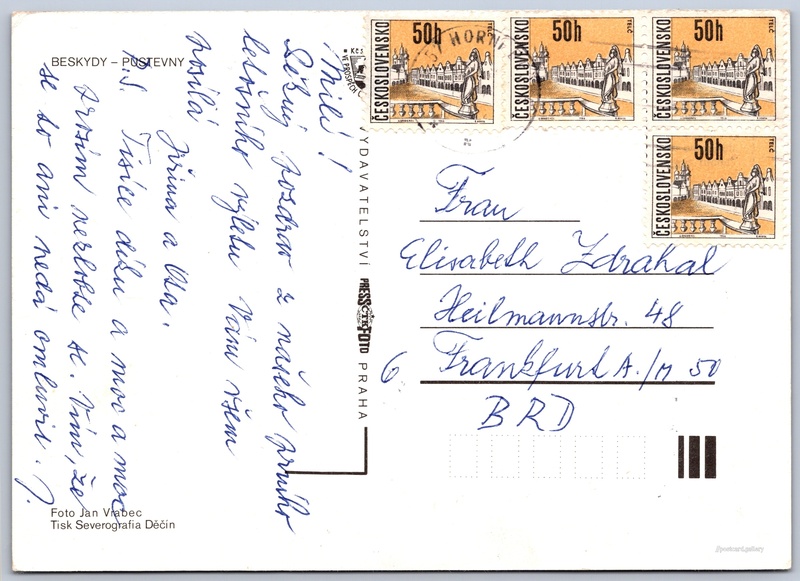 BESKYDY – PUSTEVNY
Milí!
Srdečný pozdrav z našeho prvního
letošního výletu Vám všem
posílá
Jiřina a Ota.
P.S. Tisíce díků a moc a moc
prosím nezlobte se. Vím, že
se to ani nedá omluvit. J.
Foto Jan Vrabec
Tisk Severografia Děčín
VYDAVATELSTVÍ
PRESSFOTO
ČTK
PRAHA
ČESKOSLOVENSKO
50h
TELČ
ČESKOSLOVENSKO
50h
TELČ
ČESKOSLOVENSKO
50h
TELČ
ČESKOSLOVENSKO
50h
TELČ
Frau
Elisabeth Zdrahal
Heilmannstr. 48
6 Frankfurt A./M 50
BRD